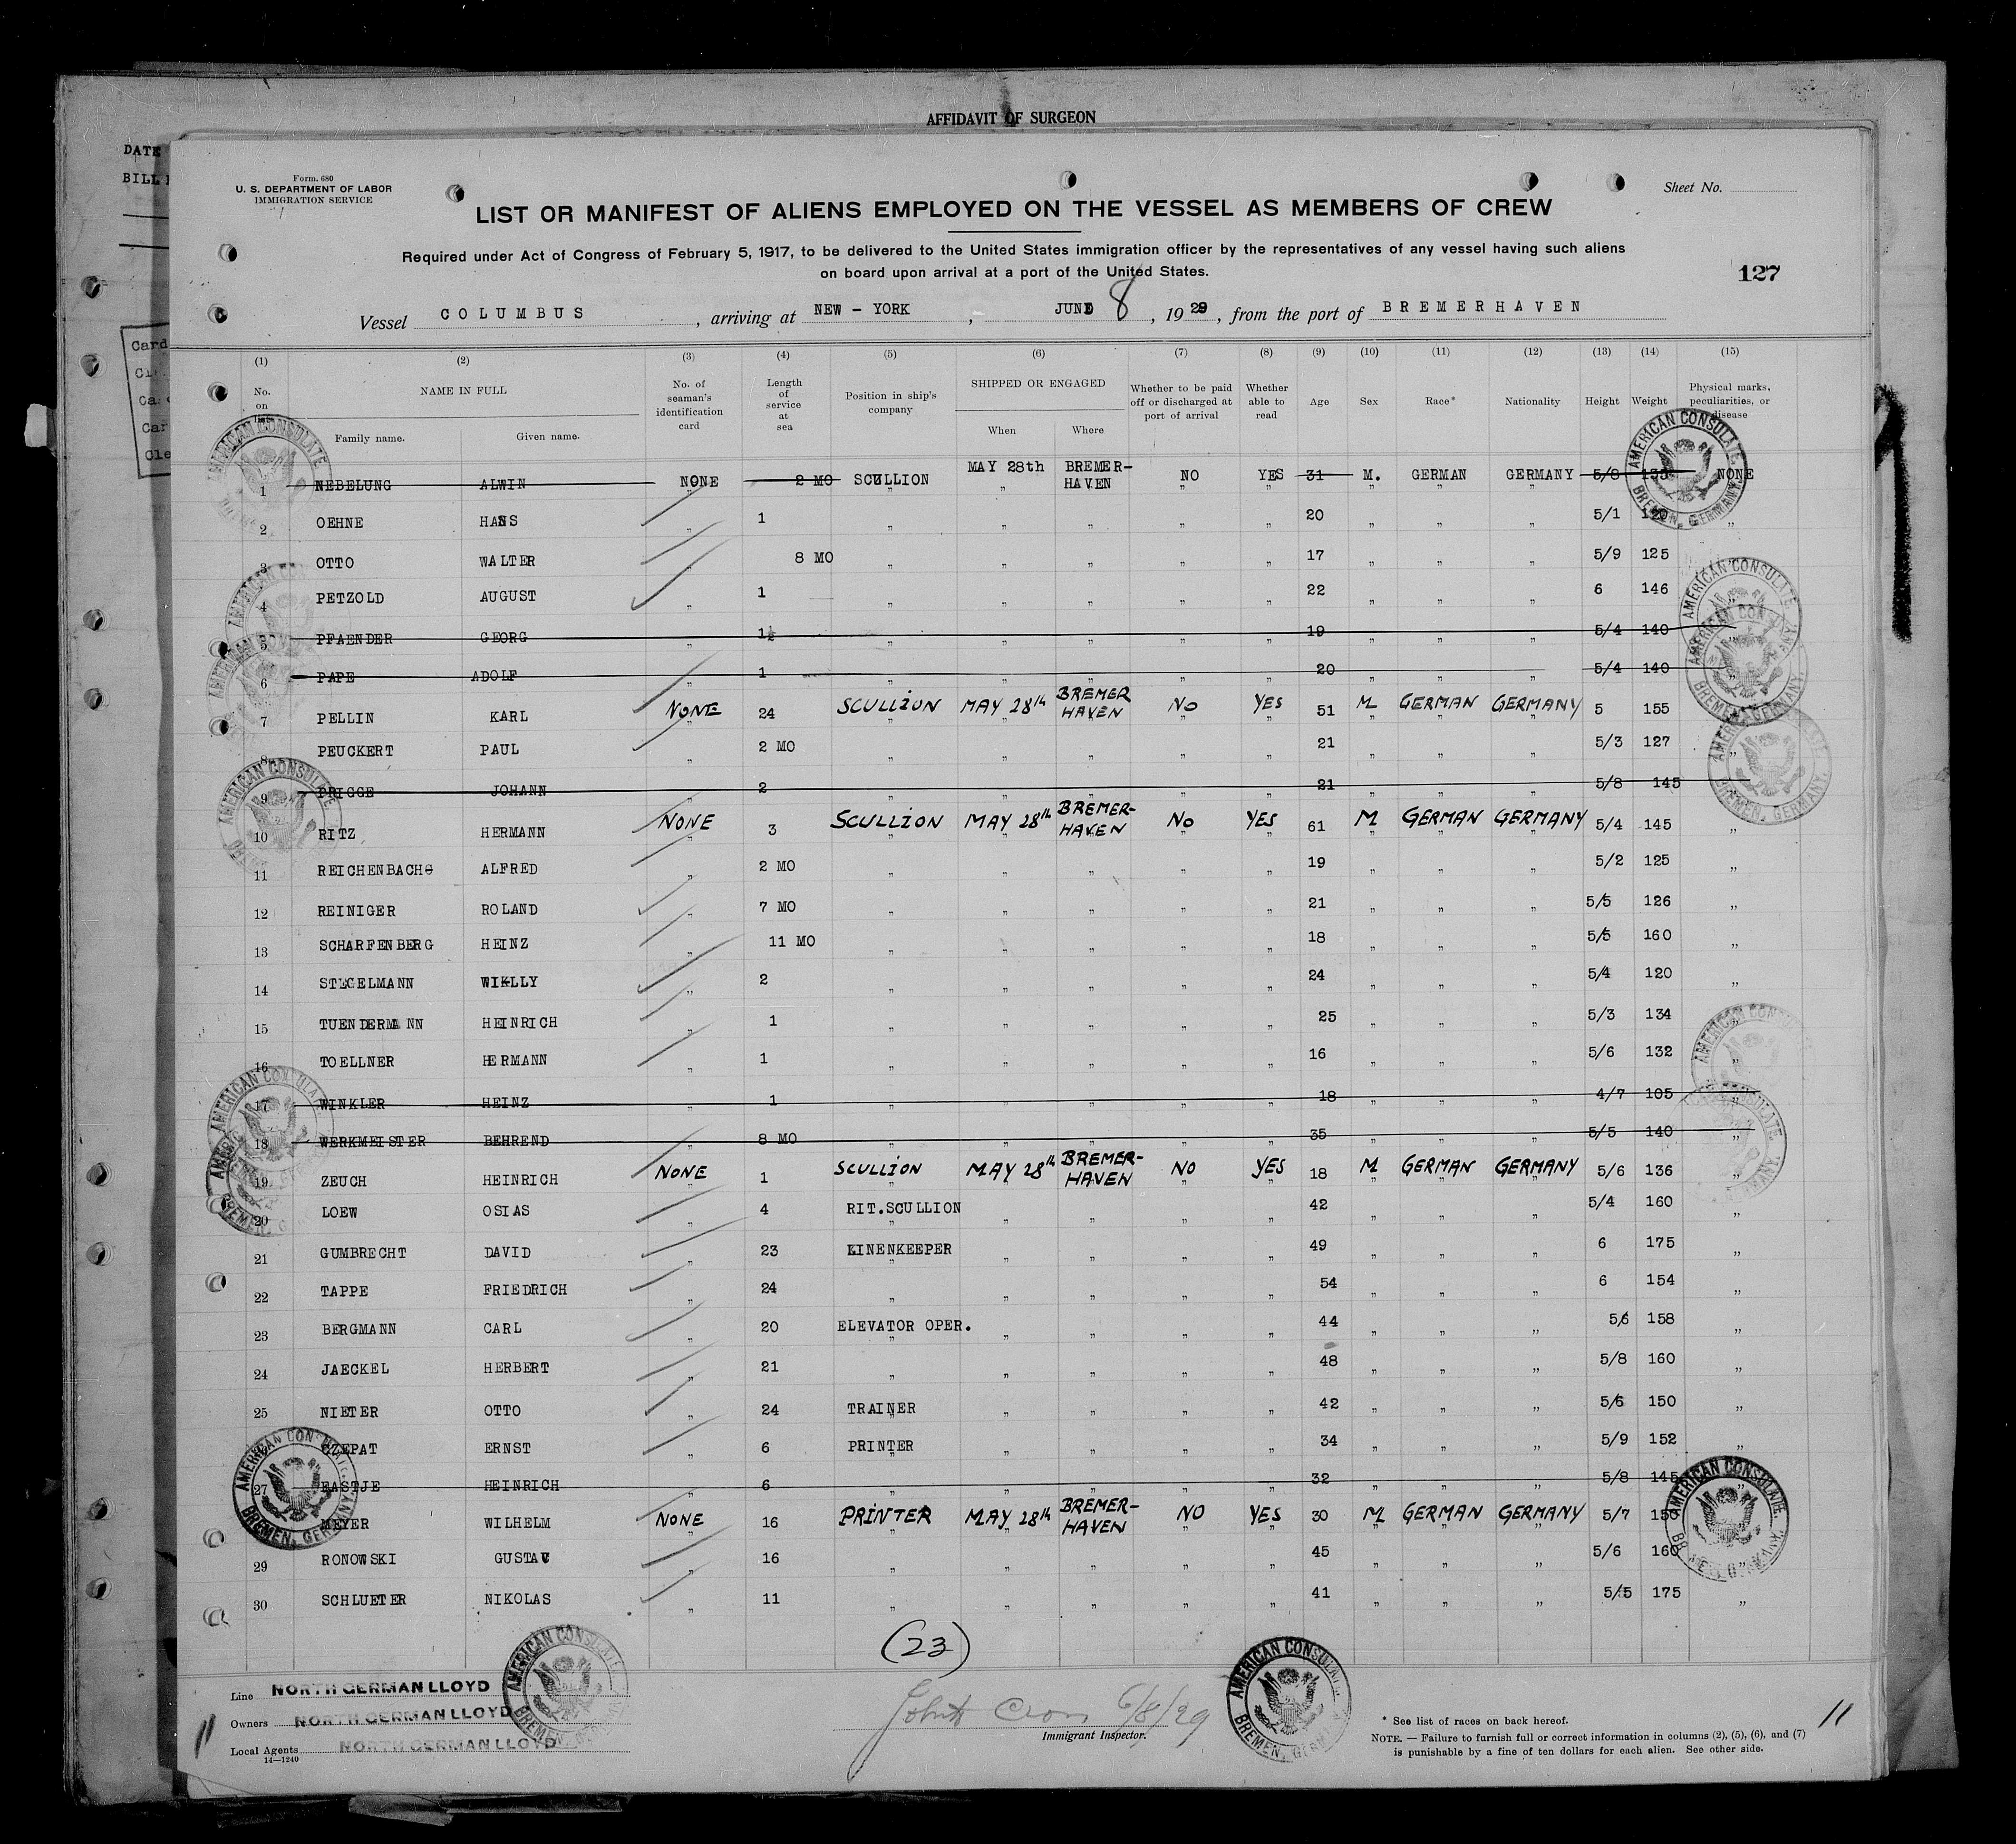 AFFIDAVIT OF SURGEON
DATE
BILL
Card
Ca
Car
Cle
Form. 680
U. S. DEPARTMENT OF LABOR
IMMIGRATION SERVICE
Sheet No.
LIST OR MANIFEST OF ALIENS EMPLOYED ON THE VESSEL AS MEMBERS OF CREW
Required under Act of Congress of February 5, 1917, to be delivered to the United States immigration officer by the representatives of any vessel having such aliens
on board upon arrival at a port of the United States.
127
Vessel COLUMBUS, arriving at NEW - YORK, JUNE 8, 1929, from the port of BREMERHAVEN
(1) (2) (3) (4) (5) (6) (7) (8) (9) (10) (11) (12) (13) (14) (15)
No. on list
NAME IN FULL
Family name. Given name.
No. of seaman's identification card
Length of service at sea
Position in ship's company
SHIPPED OR ENGAGED
When Where
Whether to be paid off or discharged at port of arrival
Whether able to read
Age
Sex
Race*
Nationality
Height
Weight
Physical marks, peculiarities, or disease
1 NEBELUNG ALWIN NONE 2 MO SCULLION MAY 28th BREMER-HAVEN NO YES 31 M. GERMAN GERMANY 5/8 135 NONE
2 OEHNE HANS " 1 " " " " " 20 " " " 5/1 120 "
3 OTTO WALTER " 8 MO " " " " " 17 " " " 5/9 125
4 PETZOLD AUGUST " 1 " " " " " 22 " " " 6 146 "
5 PFAENDER GEORG " 1½ " " " " " 19 " " " 5/4 140 "
6 PAPE ADOLF " 1 " " " " " 20 " " " 5/4 140 "
7 PELLIN KARL NONE 24 SCULLION MAY 28th BREMER HAVEN NO YES 51 M GERMAN GERMANY 5 155 "
8 PEUCKERT PAUL " 2 MO " " " " " 21 " " " 5/3 127 "
9 PRIGGE JOHANN " 2 " " " " " 21 " " " 5/8 145
10 RITZ HERMANN NONE 3 SCULLION MAY 28th BREMER-HAVEN NO YES 61 M GERMAN GERMANY 5/4 145 "
11 REICHENBACHS ALFRED " 2 MO " " " " " 19 " " " 5/2 125 "
12 REINIGER ROLAND " 7 MO " " " " " 21 " " " 5/5 126 "
13 SCHARFENBERG HEINZ " 11 MO " " " " " 18 " " " 5/5 160 "
14 STEGELMANN WILLY " 2 " " " " " 24 " " " 5/4 120 "
15 TUENDERMANN HEINRICH " 1 " " " " " 25 " " " 5/3 134 "
16 TOELLNER HERMANN " 1 " " " " " 16 " " " 5/6 132 "
17 WINKLER HEINZ " 1 " " " " " 18 " " " 4/7 105 "
18 WERKMEISTER BEHREND " 8 MO " " " " " 35 " " " 5/5 140 "
19 ZEUCH HEINRICH NONE 1 SCULLION MAY 28th BREMER-HAVEN NO YES 18 M GERMAN GERMANY 5/6 136 "
20 LOEW OSIAS " 4 RIT.SCULLION " " " " 42 " " " 5/4 160 "
21 GUMBRECHT DAVID " 23 LINENKEEPER " " " " 49 " " " 6 175 "
22 TAPPE FRIEDRICH " 24 " " " " " 54 " " " 6 154 "
23 BERGMANN CARL " 20 ELEVATOR OPER. " " " " 44 " " " 5/6 158 "
24 JAECKEL HERBERT " 21 " " " " " 48 " " " 5/8 160 "
25 NIETER OTTO " 24 TRAINER " " " " 42 " " " 5/6 150 "
CZEPAT ERNST " 6 PRINTER " " " " 34 " " " 5/9 152 "
27 EASTJE HEINRICH " 6 " " " " " 32 " " " 5/8 145 "
MEYER WILHELM NONE 16 PRINTER MAY 28th BREMER-HAVEN NO YES 30 M GERMAN GERMANY 5/7 150
29 RONOWSKI GUSTAV " 16 " " " " " 45 " " " 5/6 160 "
30 SCHLUETER NIKOLAS " 11 " " " " " 41 " " " 5/5 175 "
(23)
Line NORTH GERMAN LLOYD
Owners NORTH GERMAN LLOYD
Local Agents NORTH GERMAN LLOYD
14—1240
11
6/8/29
Immigrant Inspector.
AMERICAN CONSULATE
BREMEN, GERMANY.
* See list of races on back hereof.
NOTE. — Failure to furnish full or correct information in columns (2), (5), (6), and (7)
is punishable by a fine of ten dollars for each alien. See other side.
11